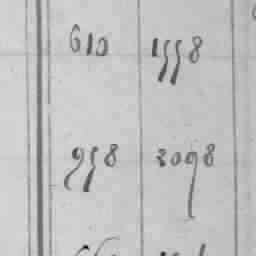 610 1558
958 2098